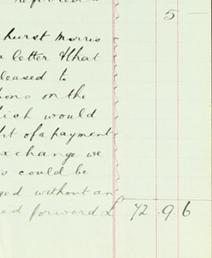 5 —
hurst Morris
a letter & that
leased to
on the
would
of a payment
exchange we
could be
without an
forward £ 72 . 9 6